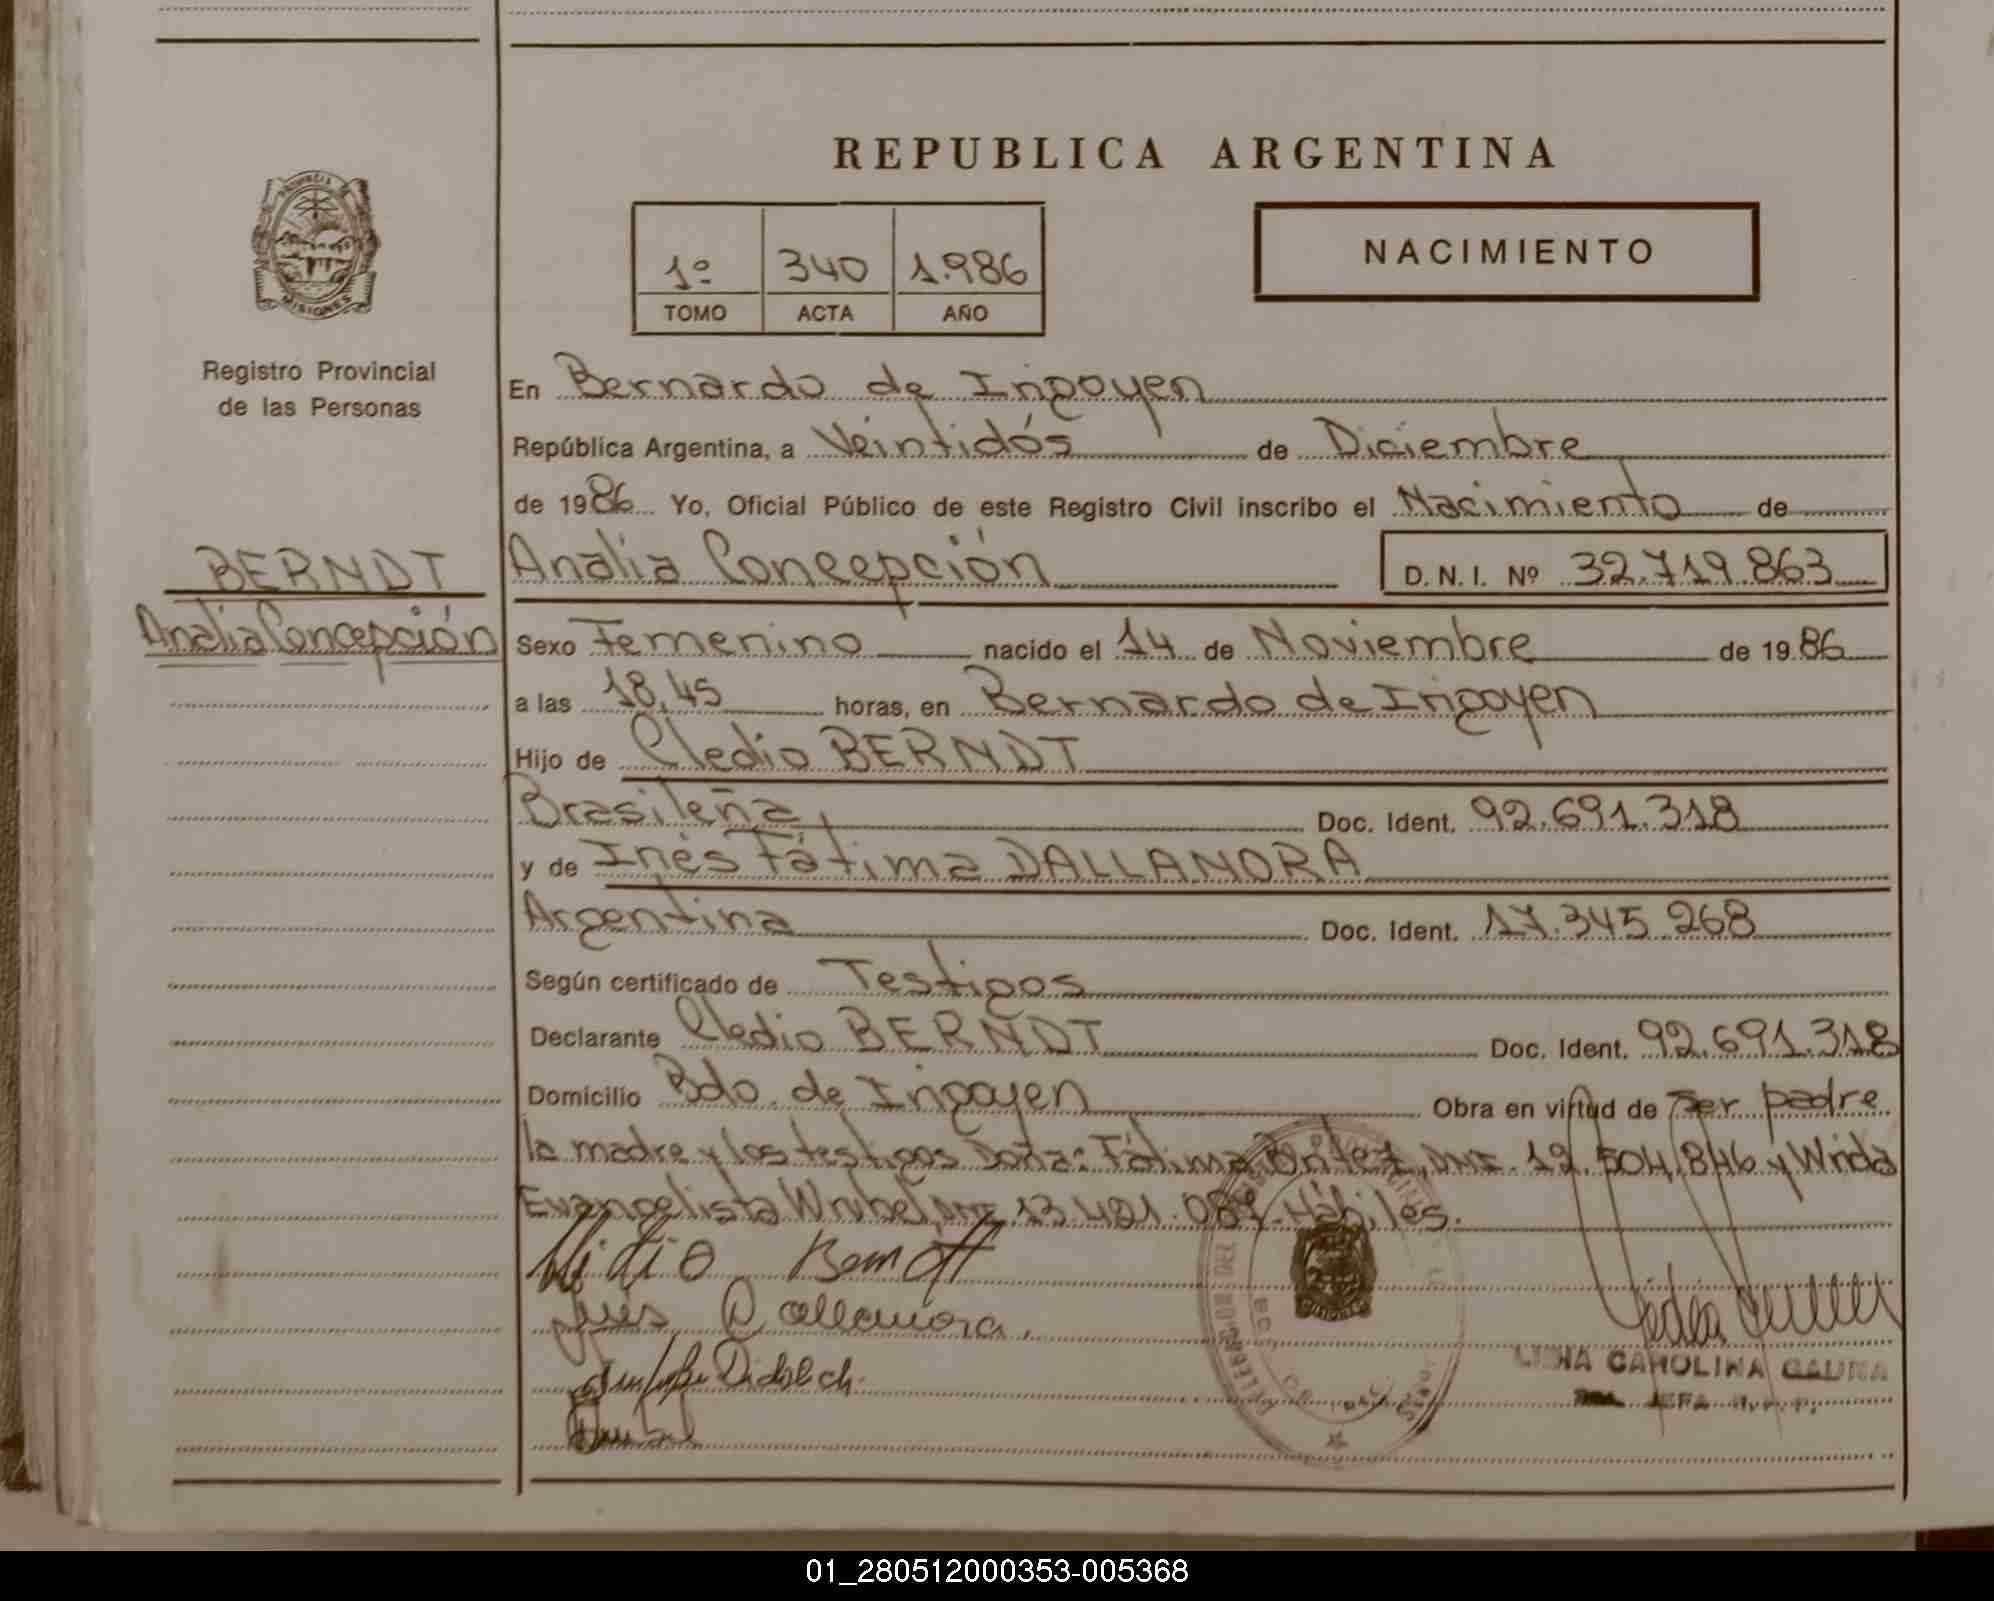 REPUBLICA ARGENTINA
1º 340 1.986
TOMO ACTA AÑO
NACIMIENTO
PROVINCIA DE
MISIONES
Registro Provincial
de las Personas
BERNDT
Analia Concepción
En Bernardo de Irigoyen
República Argentina, a Veintidós de Diciembre
de 1986 Yo, Oficial Público de este Registro Civil inscribo el Nacimiento de
Analia Concepción D.N.I. Nº 32.719.863
Sexo Femenino nacido el 14 de Noviembre de 1986
a las 18,45 horas, en Bernardo de Irigoyen
Hijo de Cledio BERNDT
Brasileña Doc. Ident. 92.691.318
y de Inés Fátima DALLANORA
Argentina Doc. Ident. 17.345.268
Según certificado de Testigos
Declarante Cledio BERNDT Doc. Ident. 92.691.318
Domicilio Bdo. de Irigoyen Obra en virtud de Ser padre
la madre y los testigos Doña: Fátima DNI. y
Evangelista Hábiles.
Berndt
Ines Dallanora.
CAROLINA GAUNA
JEFA
01_280512000353-005368